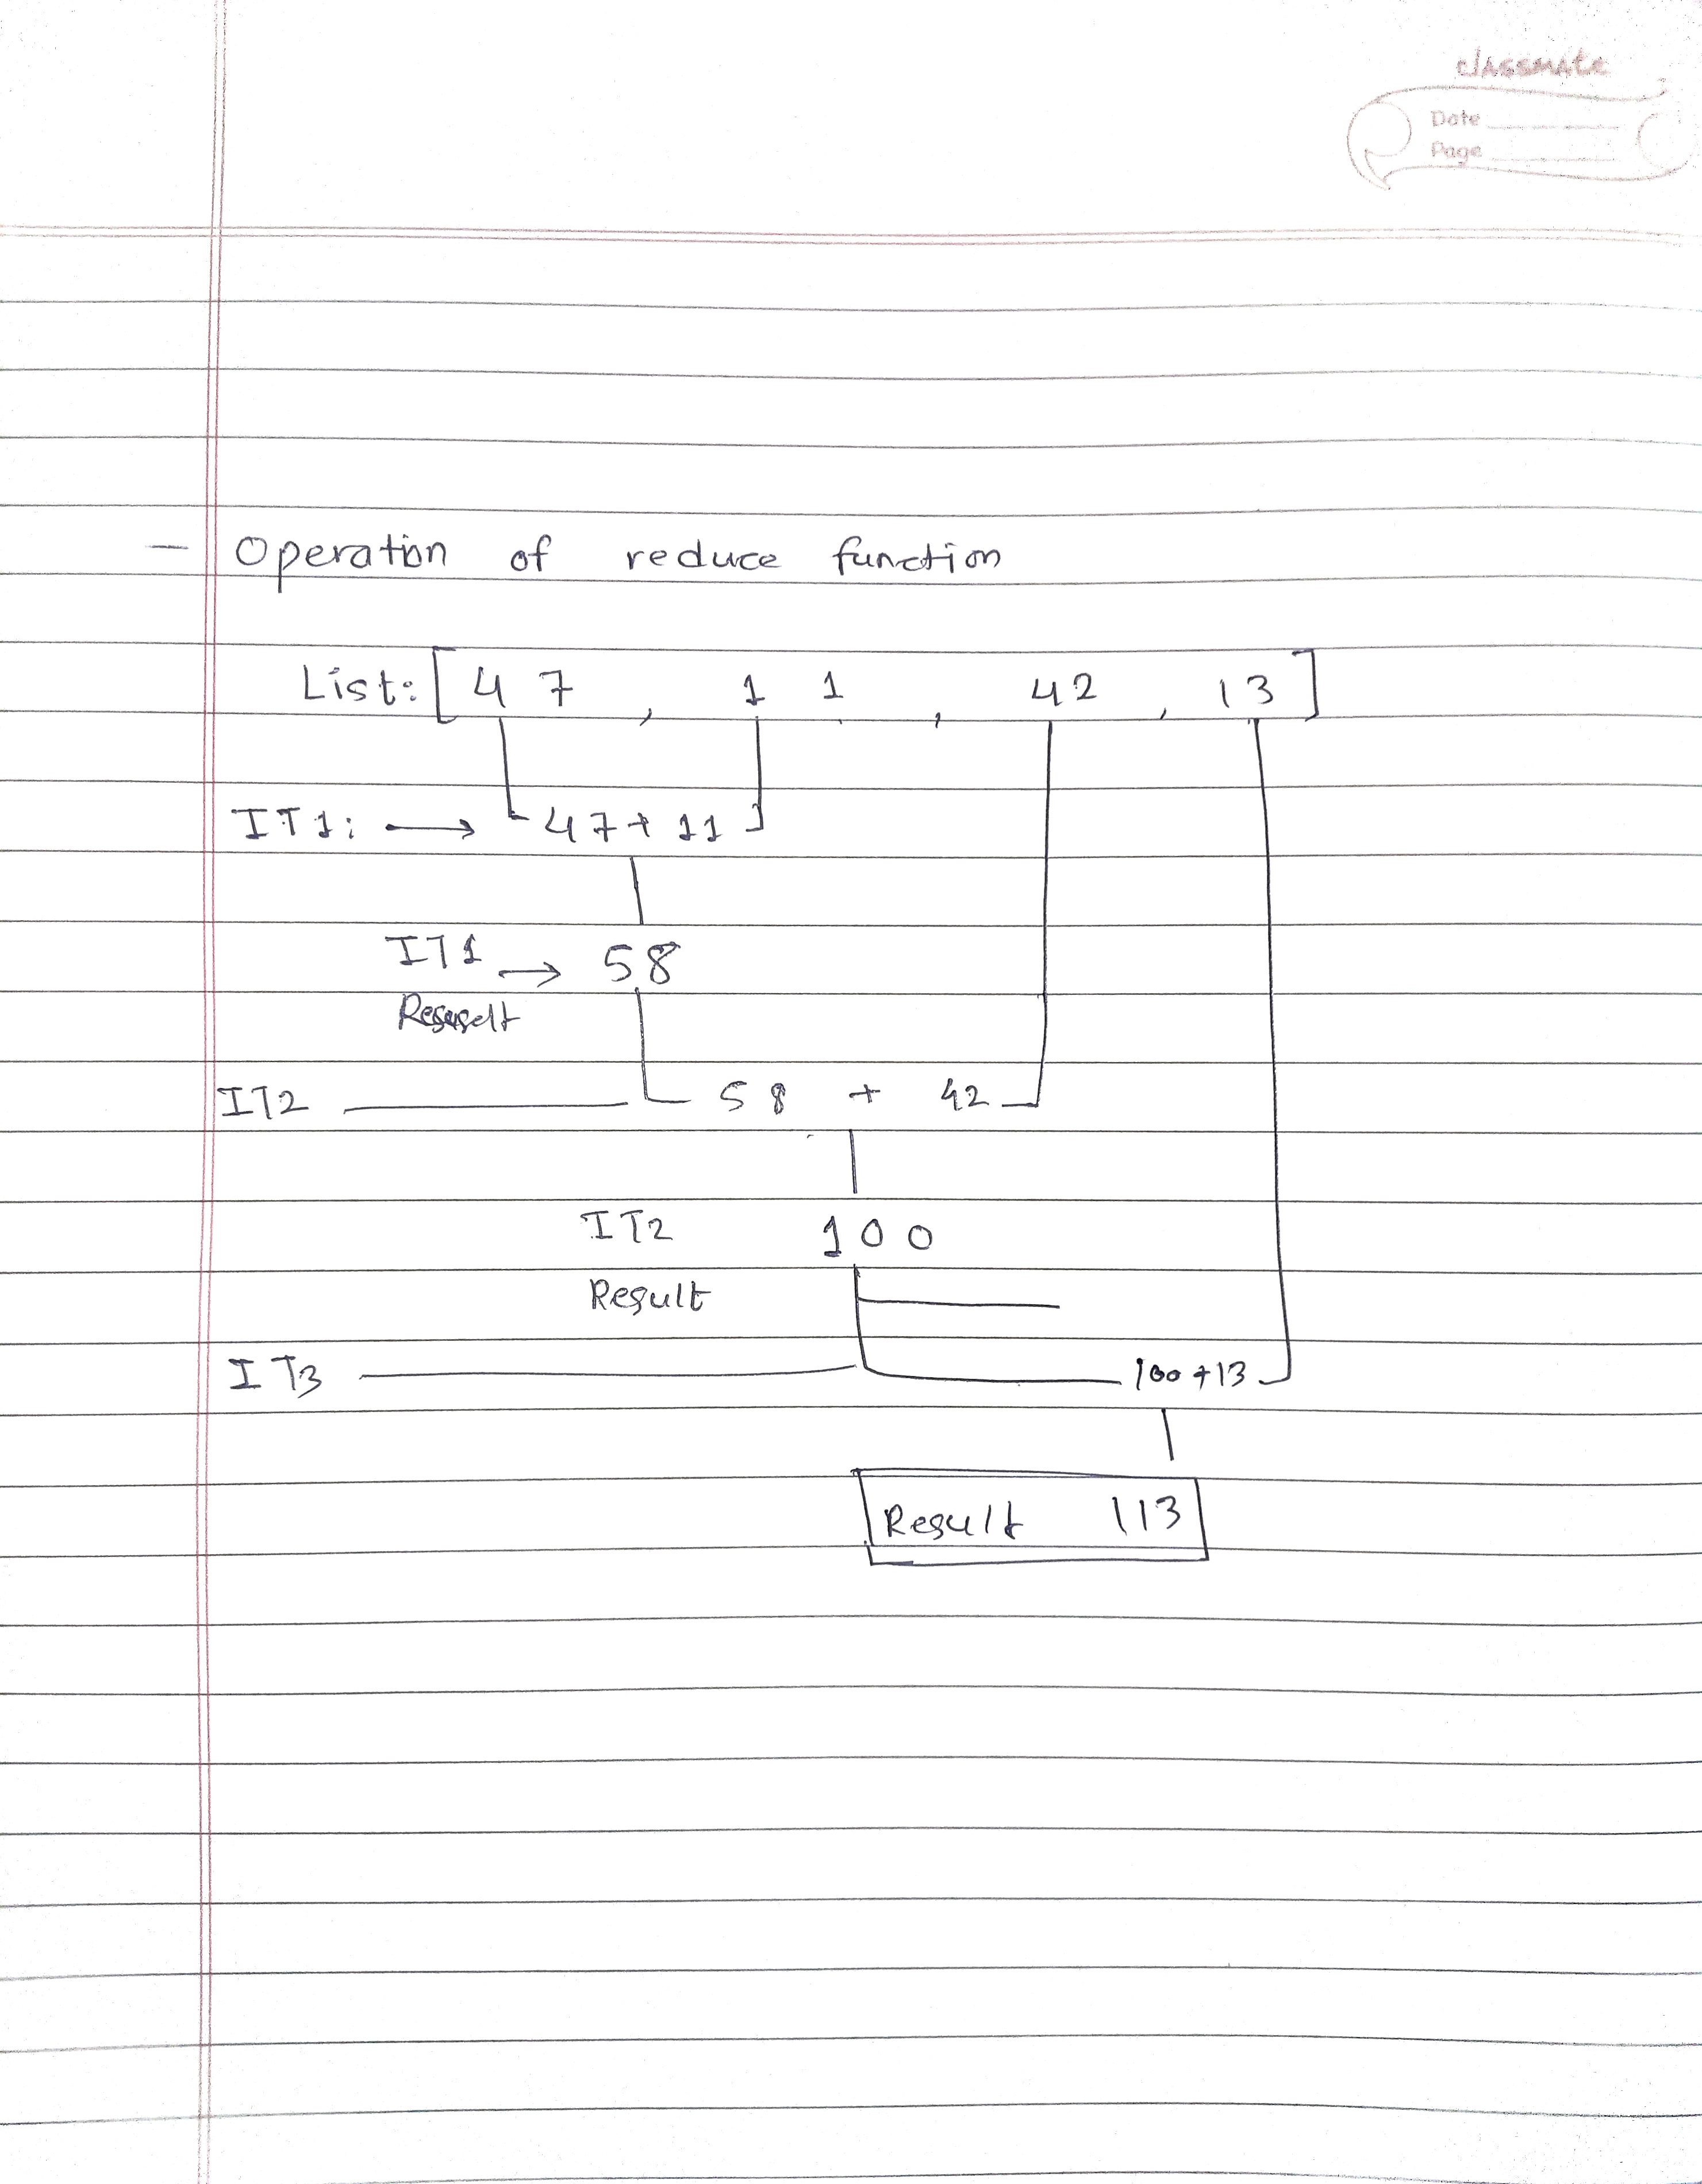 classmate
Date
Page
- Operation of reduce function
List: [ 47 , 11 , 42 , 13 ]
IT1: → 47 + 11
IT1 → 58
Result
IT2 58 + 42
IT2 100
Result
IT3 100 + 13
Result 113